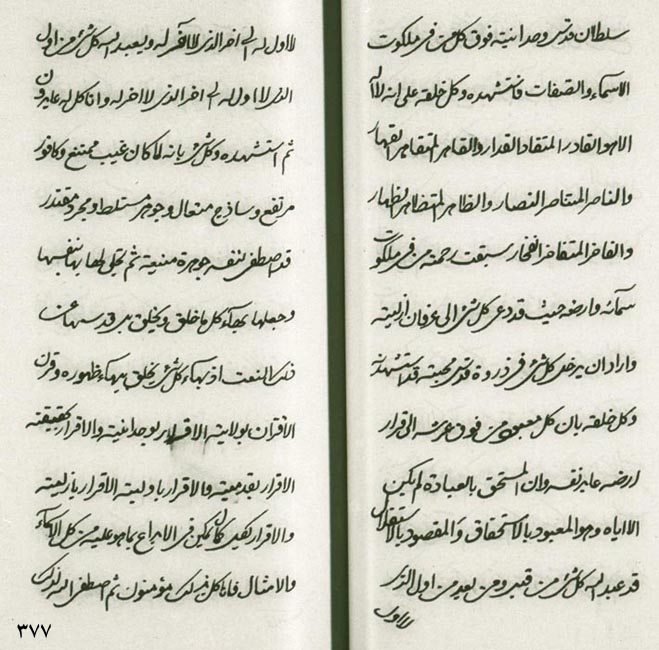 سلطان قدس وحدانیته فوق کل من فی ملکوت
الاسماء والصفات فانتشهده وکل خلقه علی انه لااله
الا هو القادر المتقادر القدار والقاهر المتقاهر القهار
والناصر المتناصر النصار والظاهر المتظاهر الظهار
والفاخر المتفاخر الفخار سبقت رحمته من فی ملکوت
سمائه وارضه حیث قد دعی کل شئ الی عرفان ازلیته
واراد ان یدخل کل شئ فی ذروة قدس محبته قد استشهدته
وکل خلقه بان کل معبود من فوق عرشه الی قرار
ارضه عابد نفسه وان المستحق بالعبادة لم یکن
الا ایاه وهو المعبود بالاستحقاق والمقصود بالاستقلال
قد عبد الله کل شئ من قبل ومن بعد من اول الذی
لا اول
لا اول له الی اخر الذی لا اخر له ویعبد الله کل شئ من اول
الذی لا اول له الی اخر الذی لا اخر له وانا کل له عابدون
ثم استشهده وکل شئ بانه لما کان غیب ممتنع وکافور
مرتفع وساذج متعال وجوهر متسلط ومجرد مقتدر
قد اصطفی لنفسه جوهرة منیعة ثم تجلی لها بها بنفسها
وجعلها بهاء کل ما خلق ویخلق
ذلک النعت اذ بهاء کل شئ یخلق ببهاء ظهوره وقرن
الاقتران بولایته الاقرار بوحدانیته والاقرار بحقیقته
الاقرار بقدمیته والاقرار باولیته الاقرار بازلیته
والاقرار یکن فی الابداع بما هو علیه من کل الاسماء
والامثال فانا کل بذلک مؤمنون ثم اصطفی الله لذلک
٣٧٧